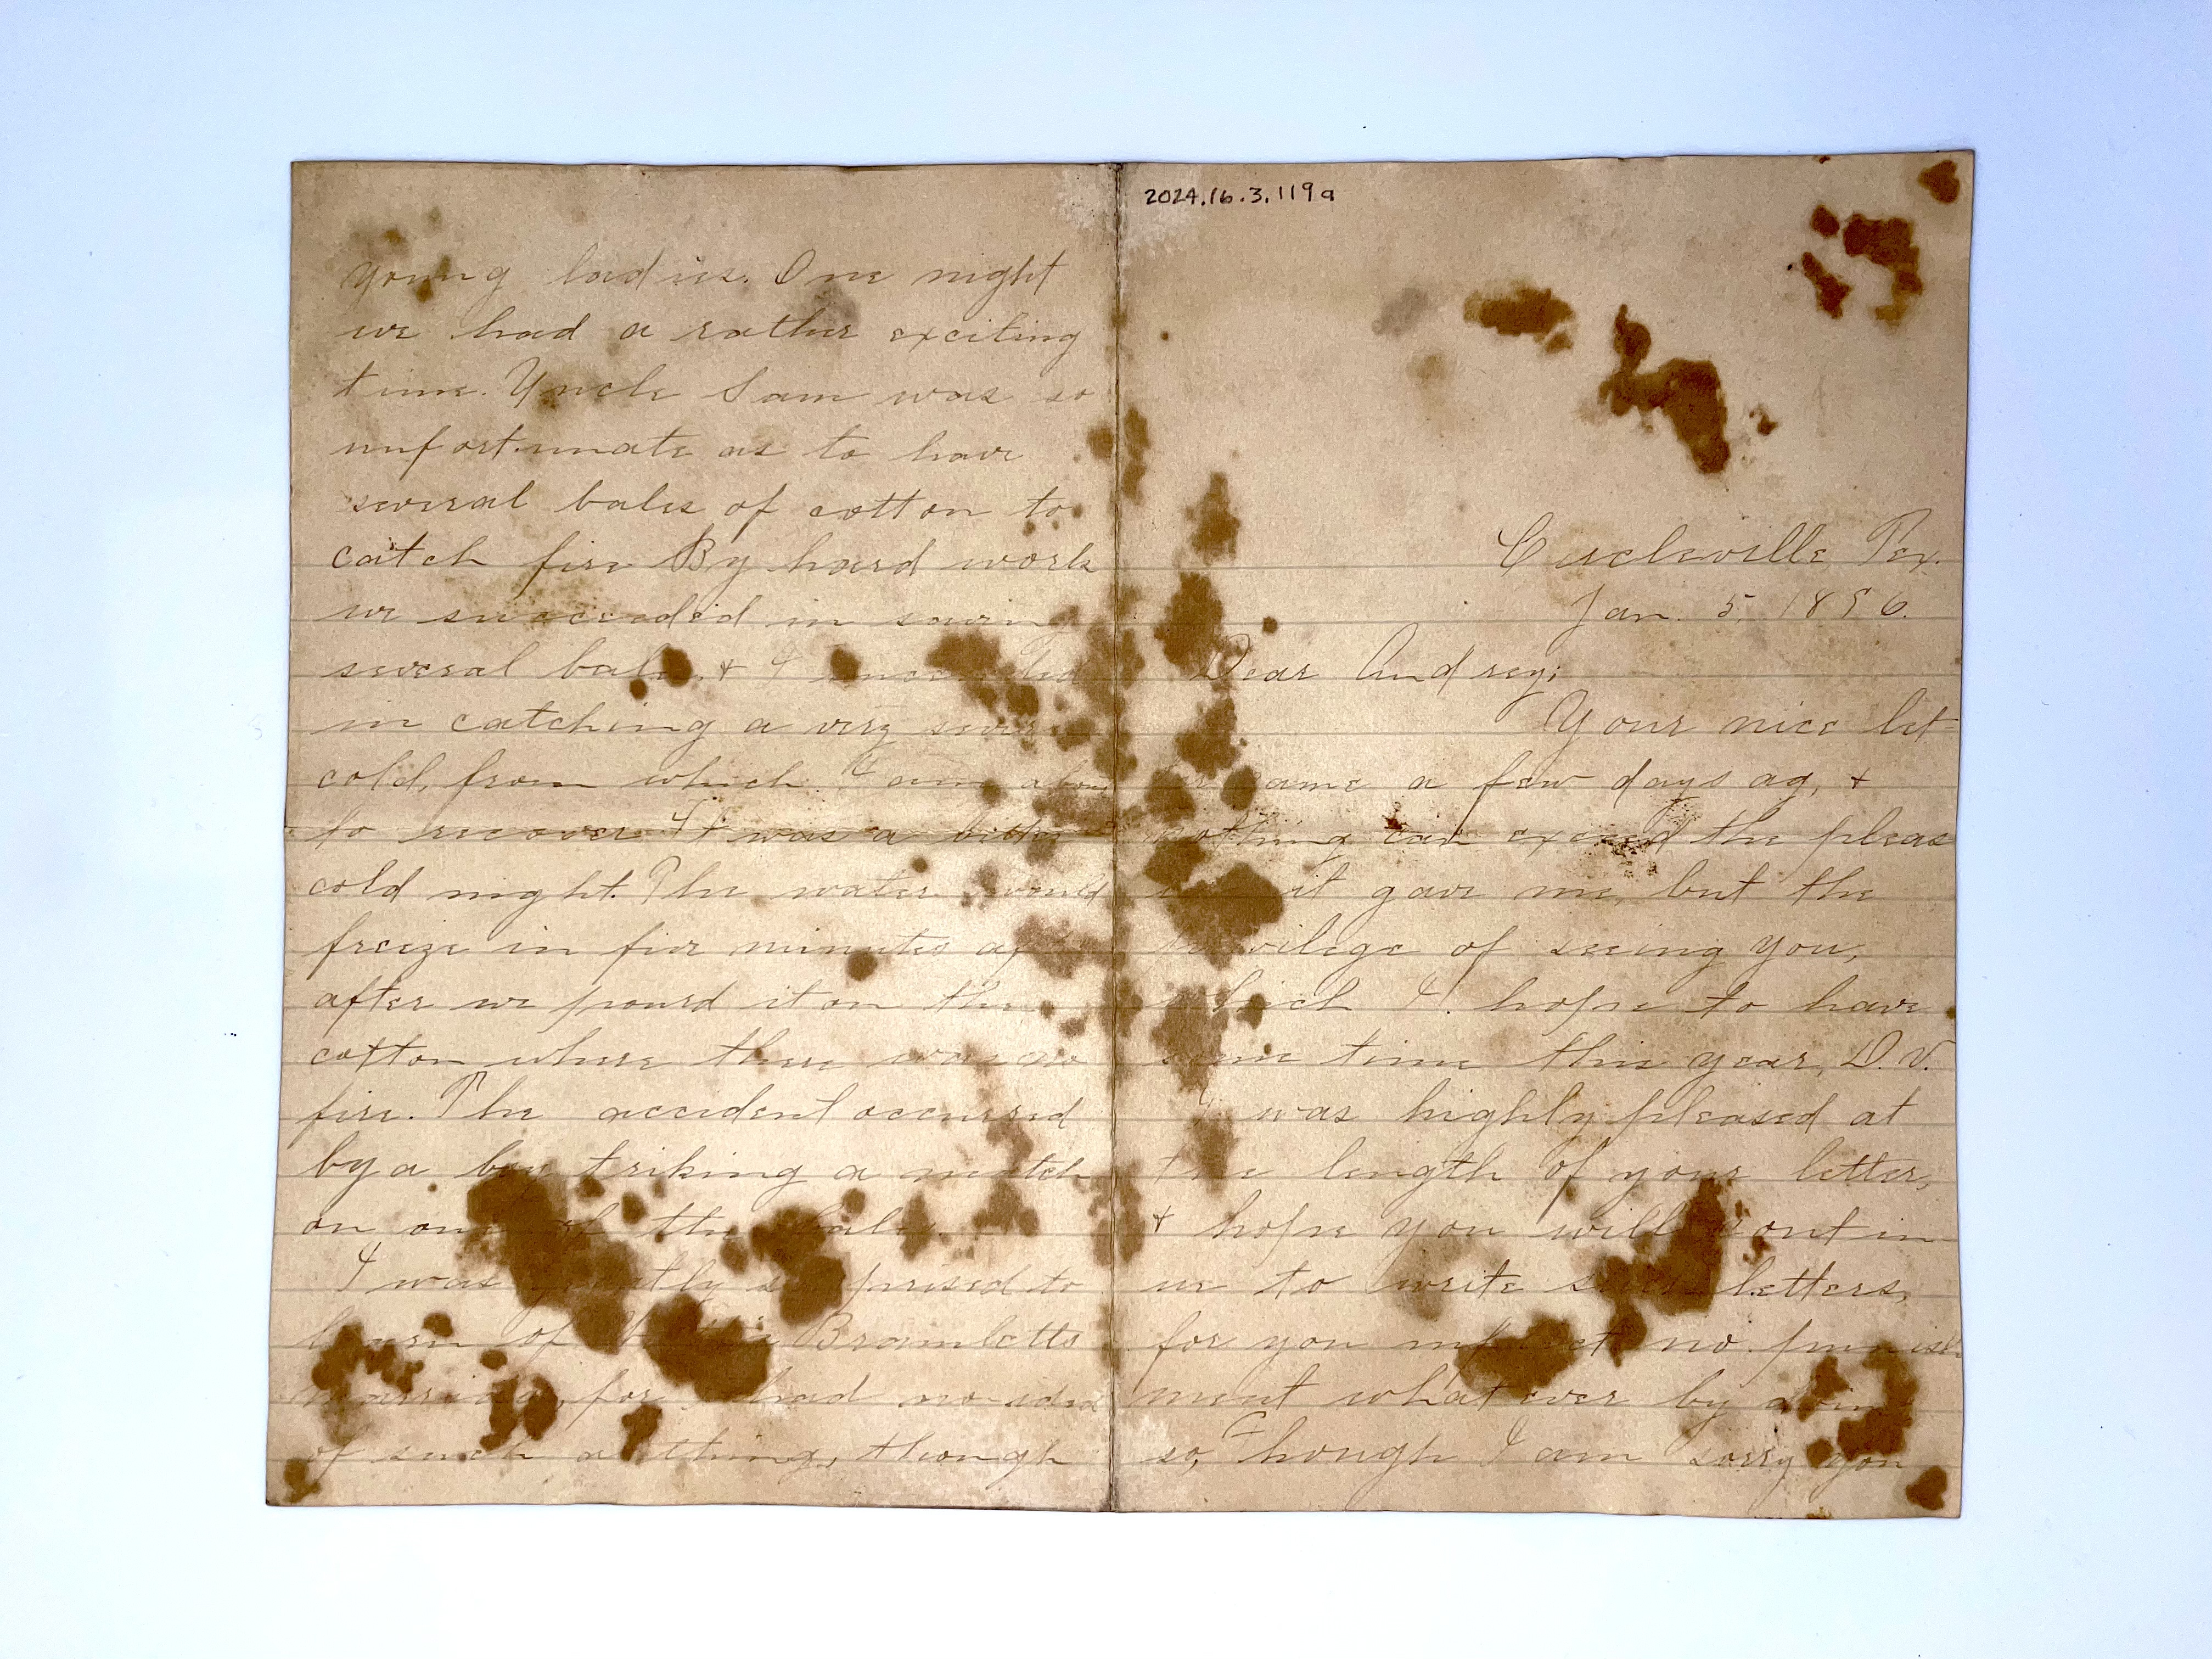 2024.16.3.119a
Circleville Tex.
Jan. 5, 1896.
Dear Audrey;
Your nice let-
ter came a few days ag, +
nothing can exceed the pleas
it gave me, but the
privilege of seeing you,
which I hope to have
some time this year, D.V.
I was highly pleased at
the length of your letter,
+ hope you will contin
ue to write such letters,
for you inflict no punish
ment what ever by doing
so, Though I am sorry you
young ladies. One night
we had a rather exciting
time. Uncle Sam was so
unfortunate as to have
several bales of cotton to
catch fire By hard work
we succeeded in saving
several bales, + I succeeded
in catching a very severe
cold, from which I am about
to recover It was a bitter
cold night. The water would
freeze in five minutes
after we pourd it on the
cotton where there was no
fire. The accident occurred
by a boy triking a match
on one of the bales.
I was greatly surprised to
learn of Bramletts
marriage, for I had no idea
of such a thing, though